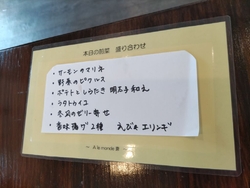 本日の前菜 盛り合わせ
・サーモンのマリネ
・野菜のピクルス
・ポテトとしらたき 明太子和え
・ラタトゥイユ
・冬瓜のゼリー寄せ
・香味揚げ2種 えび&エリンギ